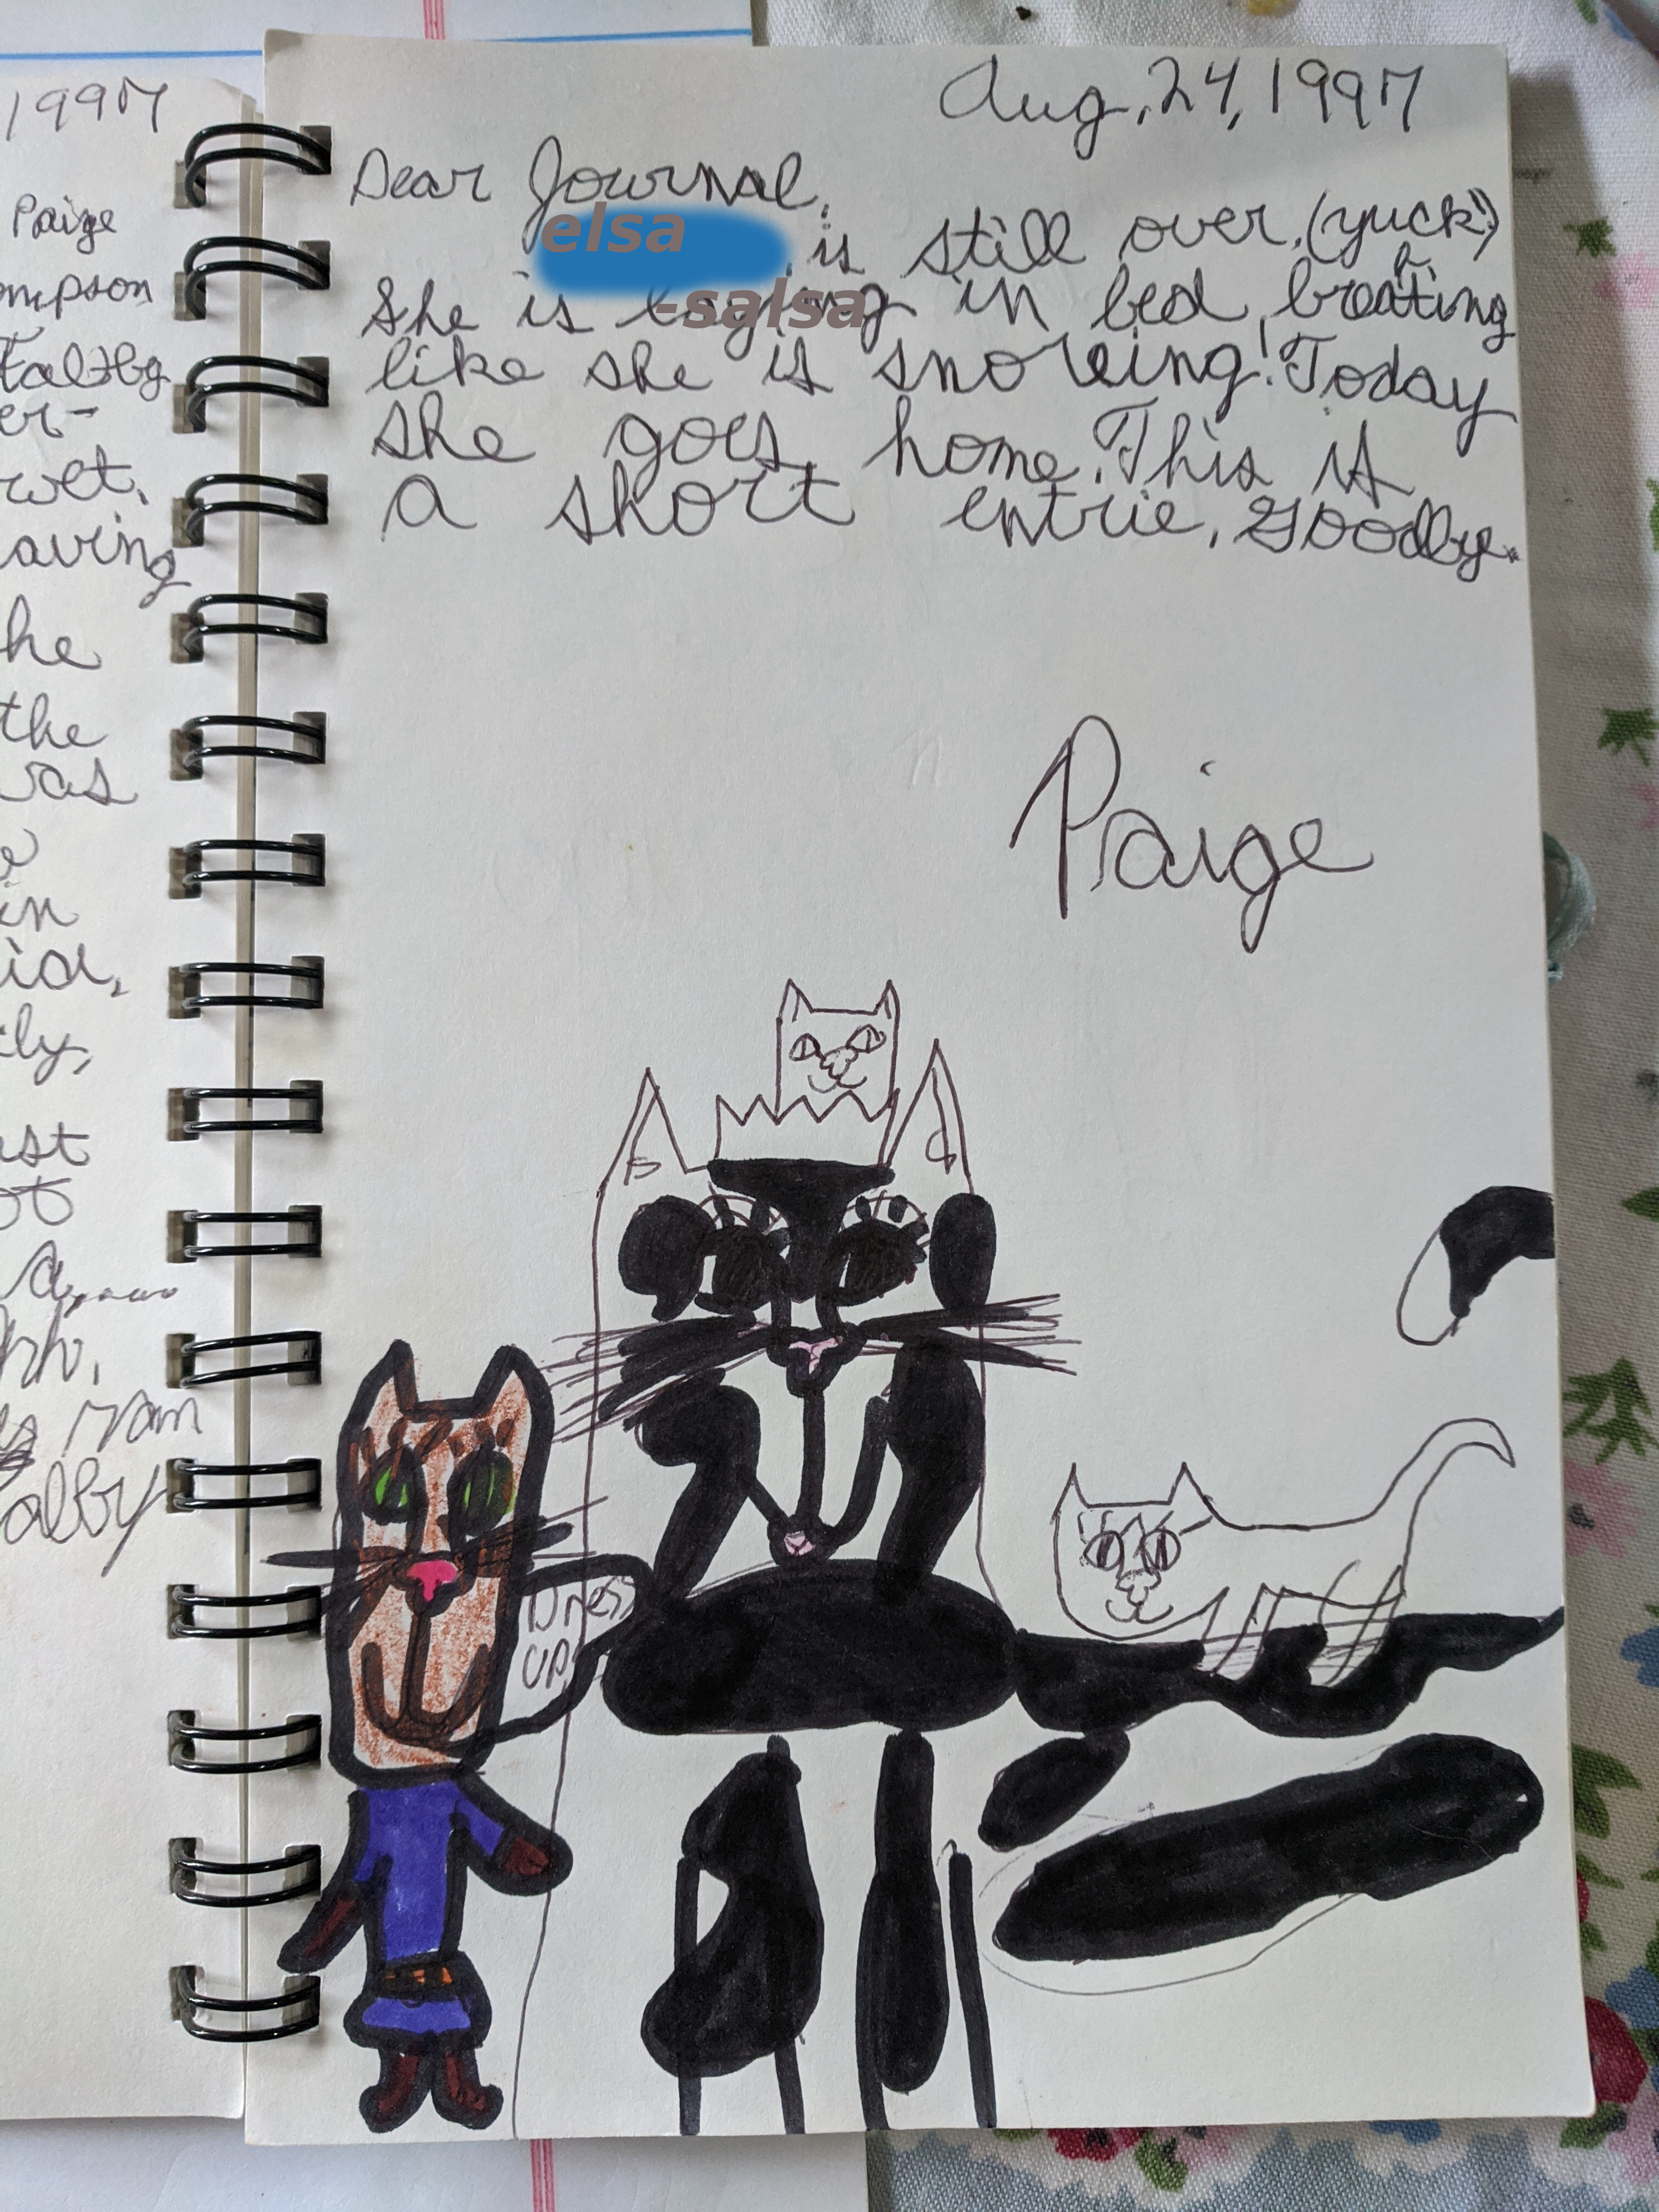 1997
Paige
mpson
er-
wet.
aving
he
the
was
in
id,
ily,
ot
a
ran
alby
Aug, 24, 1997
Dear Journal,
elsa
-salsa
is still over, (yuck!)
She is laying in bed, breathing
like she is snoreing! Today
she goes home. This is
a short entrie. Goodby.
Paige
Dress
up